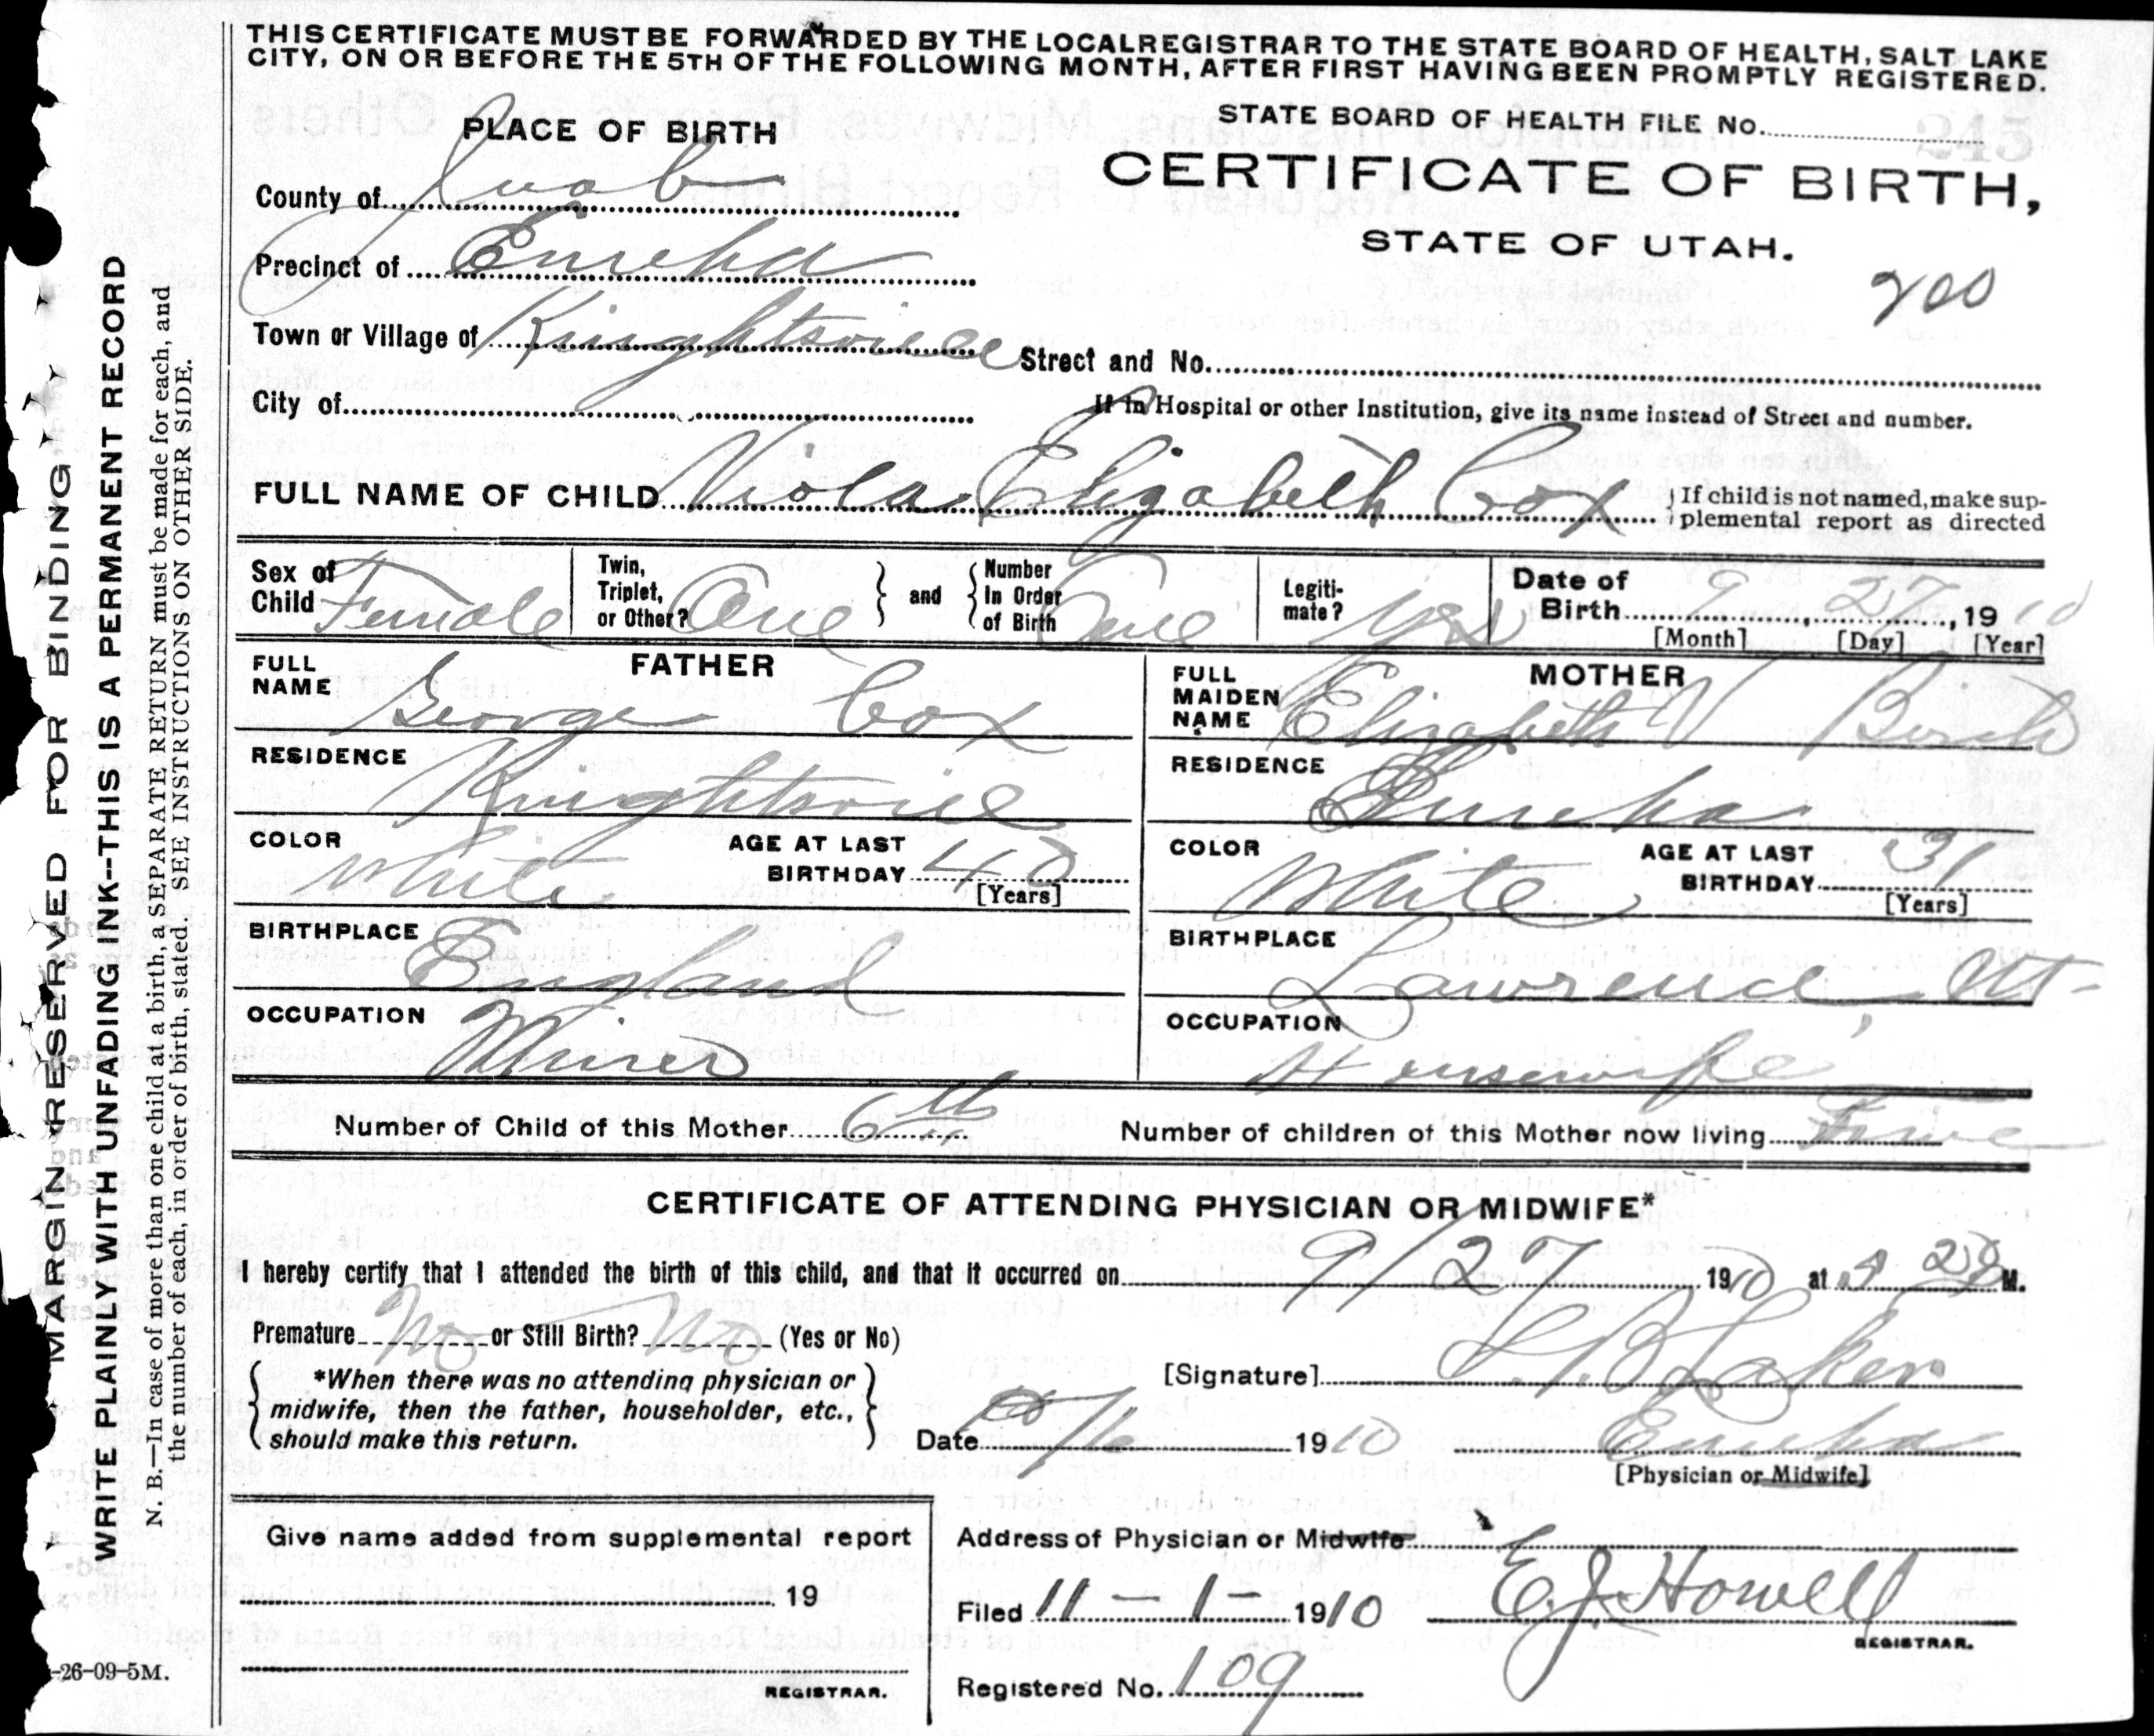 THIS CERTIFICATE MUST BE FORWARDED BY THE LOCAL REGISTRAR TO THE STATE BOARD OF HEALTH, SALT LAKE
CITY, ON OR BEFORE THE 5TH OF THE FOLLOWING MONTH, AFTER FIRST HAVING BEEN PROMPTLY REGISTERED.
PLACE OF BIRTH
STATE BOARD OF HEALTH FILE No.
CERTIFICATE OF BIRTH,
STATE OF UTAH.
200
County of Juab
Precinct of Eureka
Town or Village of Knightsville
Street and No.
City of
If in Hospital or other Institution, give its name instead of Street and number.
FULL NAME OF CHILD Viola Elizabeth Cox
If child is not named, make sup-
plemental report as directed
Sex of Child Female
Twin, Triplet, or Other? One
and
Number In Order of Birth One
Legiti-mate? Yes
Date of Birth 9, 27, 1910
[Month] [Day] [Year]
FATHER
FULL NAME George Cox
RESIDENCE Knightsville
COLOR White
AGE AT LAST BIRTHDAY 40
[Years]
BIRTHPLACE England
OCCUPATION Miner
MOTHER
FULL MAIDEN NAME Elizabeth V Birch
RESIDENCE Eureka
COLOR White
AGE AT LAST BIRTHDAY 31
[Years]
BIRTHPLACE Lawrence, Ut-
OCCUPATION Housewife
Number of Child of this Mother 6th
Number of children of this Mother now living Five
CERTIFICATE OF ATTENDING PHYSICIAN OR MIDWIFE*
I hereby certify that I attended the birth of this child, and that it occurred on 9/27 1910 at M.
Premature No or Still Birth? No (Yes or No)
*When there was no attending physician or
midwife, then the father, householder, etc.,
should make this return.
[Signature] Laker
Date 1910 Eureka
[Physician or Midwife]
Give name added from supplemental report
19
REGISTRAR.
Address of Physician or Midwife
Filed 11-1-1910 E. J. Howell
REGISTRAR.
Registered No. 109
MARGIN RESERVED FOR BINDING
WRITE PLAINLY WITH UNFADING INK--THIS IS A PERMANENT RECORD
N. B.—In case of more than one child at a birth, a SEPARATE RETURN must be made for each, and
the number of each, in order of birth, stated. SEE INSTRUCTIONS ON OTHER SIDE.
-26-09-5M.